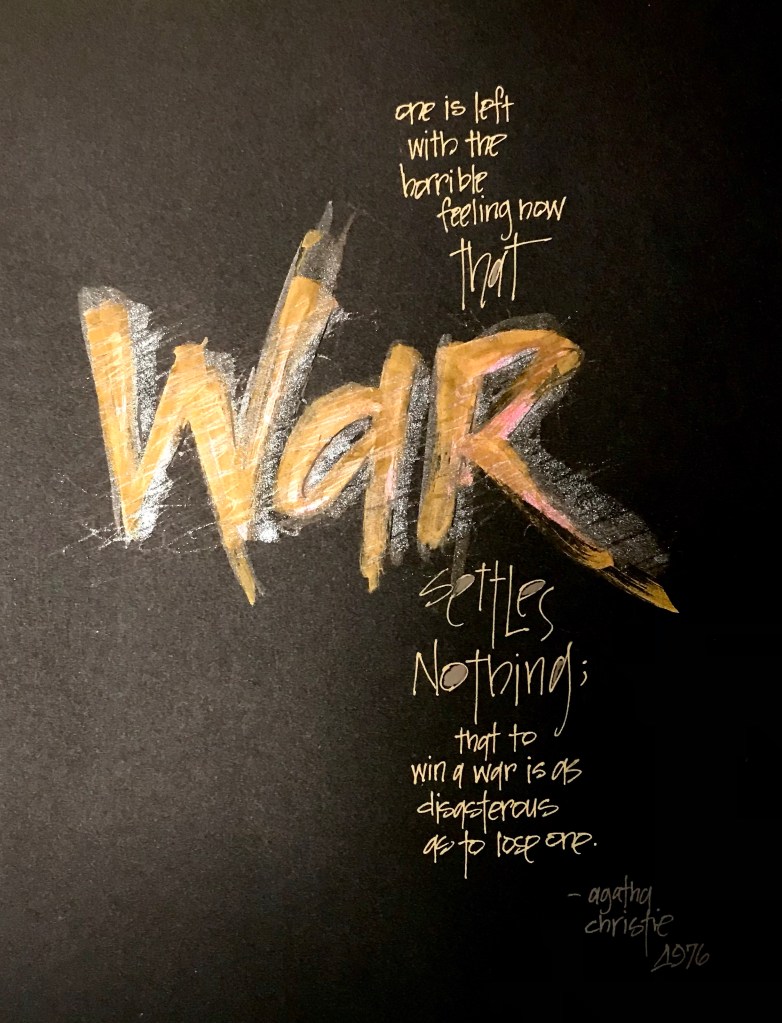 one is left
with the
horrible
feeling now
that
WaR
settles
Nothing;
that to
win a war is as
disasterous
as to lose one.
- agatha
christie
1976